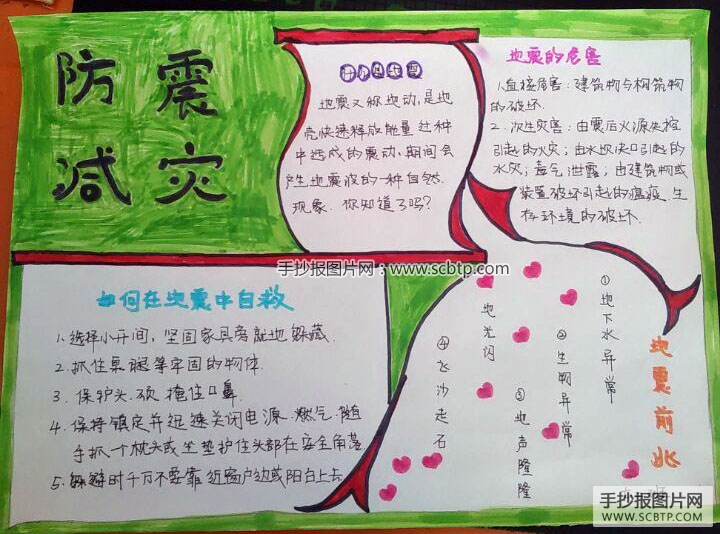 防震
减灾
什么是地震
地震又称地动,是地
壳快速释放能量过程
中造成的震动,期间会
产生地震波的一种自然
现象.你知道了吗?
地震的危害
1.直接危害:建筑物与构筑物
的破坏.
2.次生灾害:由震后火源失控
引起的火灾;由水坝决口引起的
水灾;毒气泄露;由建筑物或
装置破坏引起的瘟疫.生
存环境的破坏.
手抄报图片网:www.scbtp.com
如何在地震中自救
1.选择小开间,坚固家具旁就地躲藏.
2.抓住桌腿等牢固的物体.
3.保护头.颈.掩住口鼻
4.保持镇定并迅速关闭电源.燃气.随
手抓一个枕头或坐垫护住头部在安全角落
5.躲避时千万不要靠近窗户边或阳台上去
地震前兆
①地下水异常
②生物异常
③地声隆隆
地光闪
④飞沙走石
手抄报图片网
WWW.SCBTP.COM